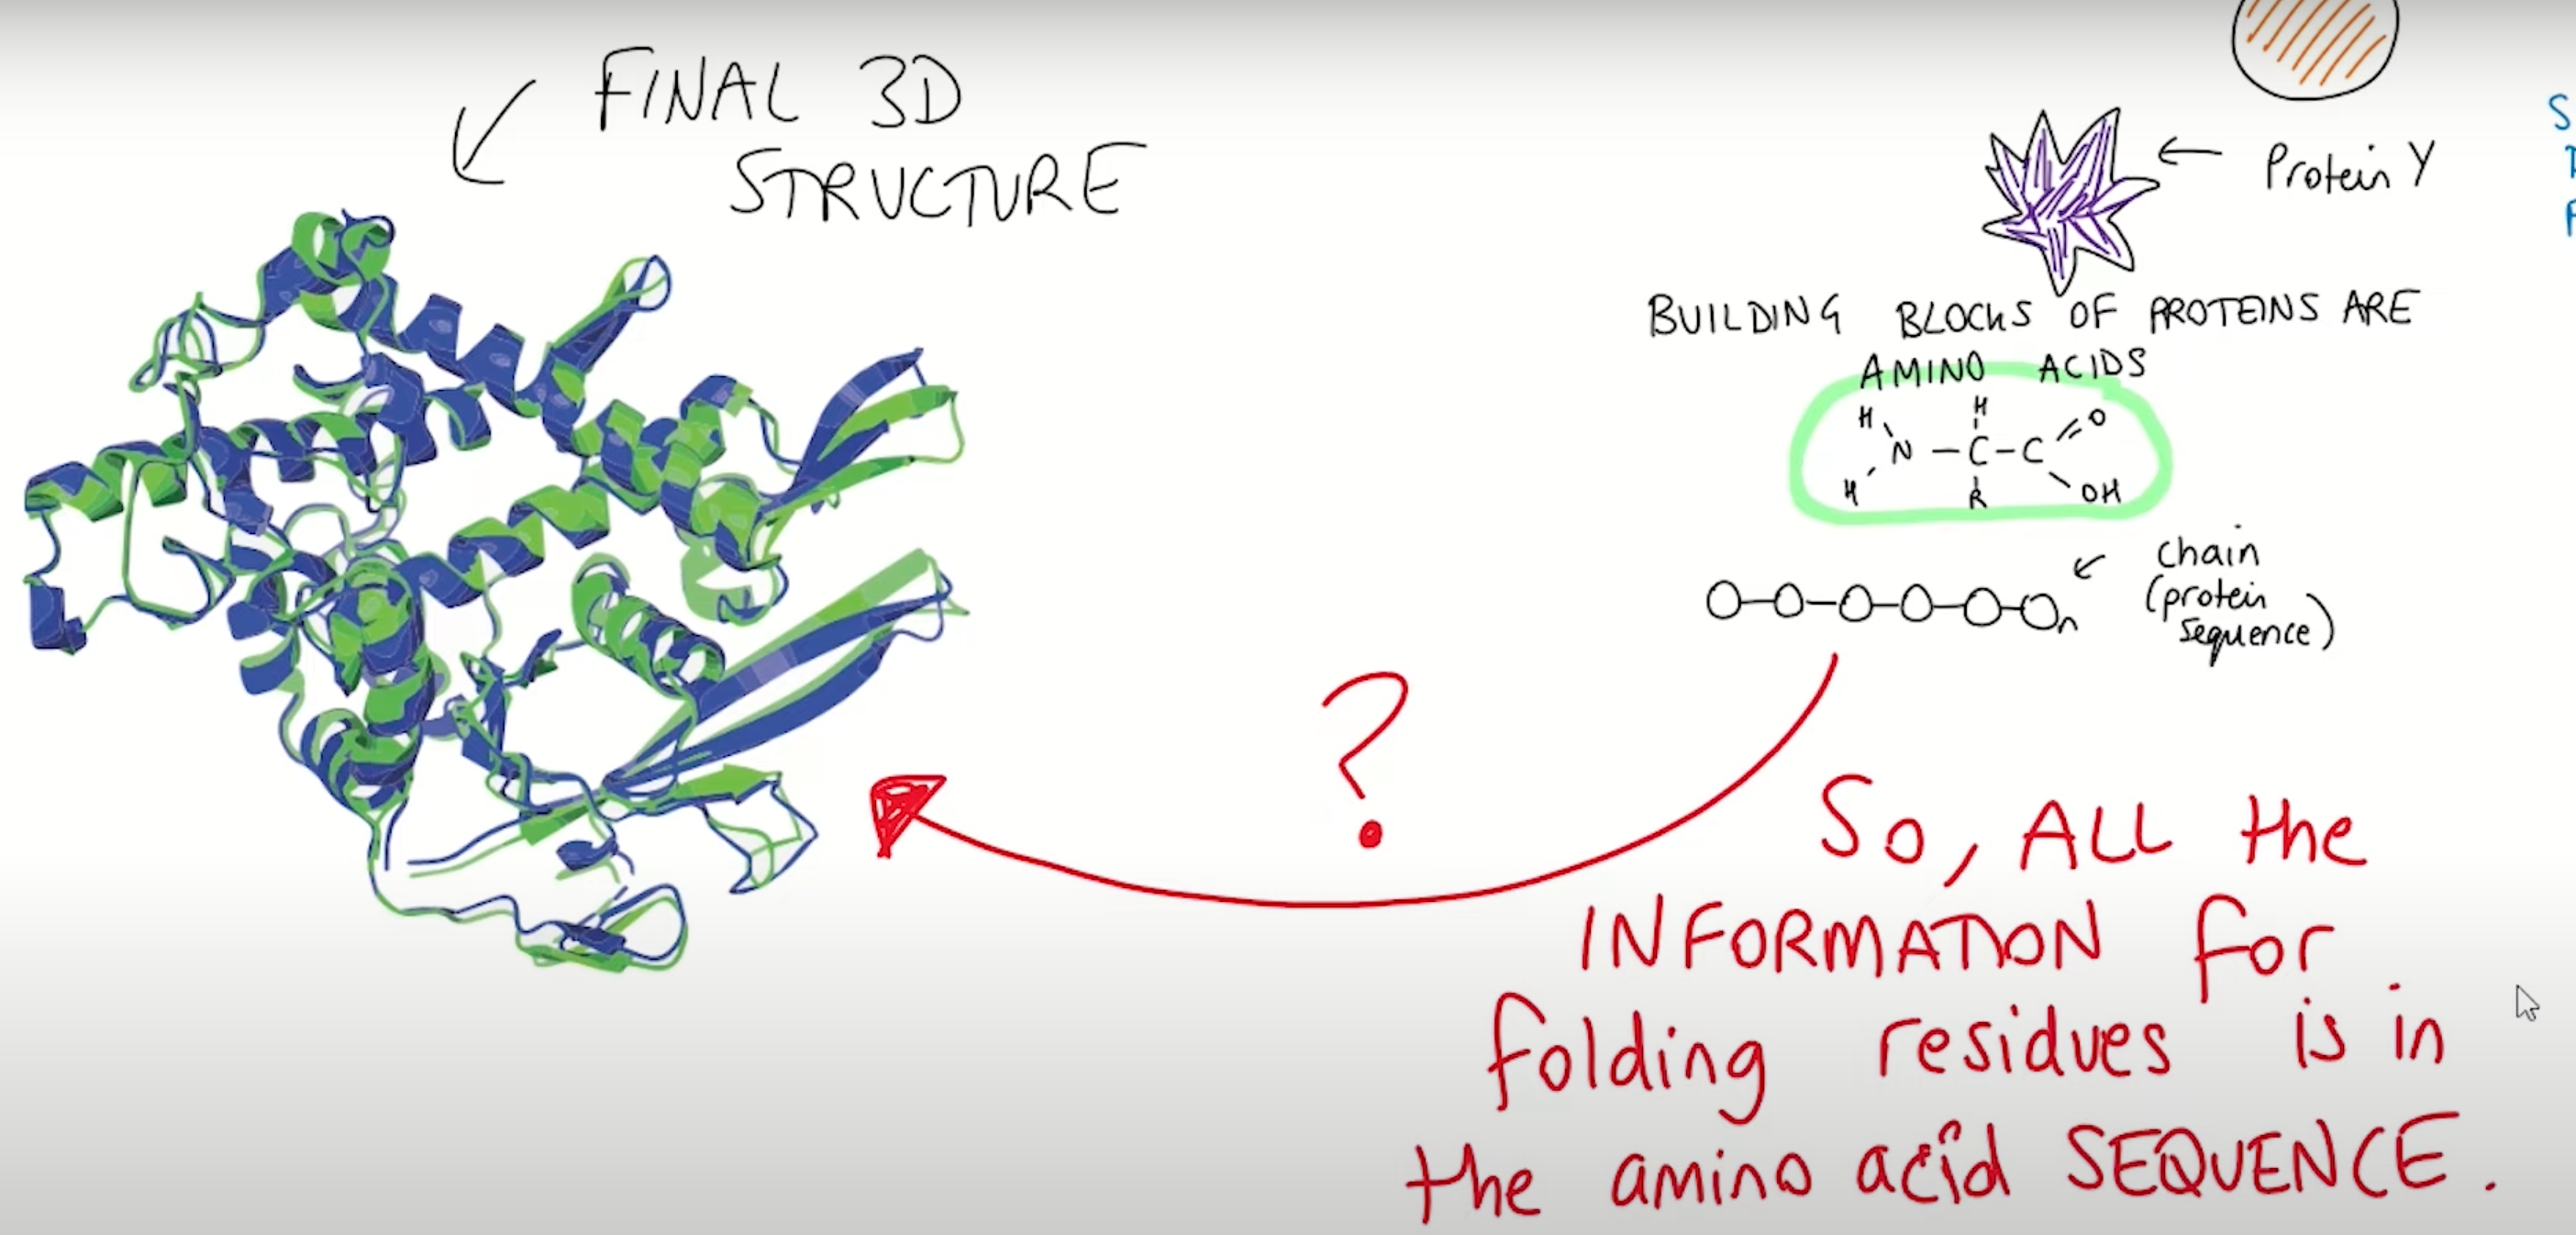 FINAL 3D
STRUCTURE
Protein Y
BUILDING BLOCKS OF PROTEINS ARE
AMINO ACIDS
H
H
O
N - C - C
H
R
OH
chain
(protein
sequence)
O-O-O-O-O-On
?
So, ALL the
INFORMATION for
folding residues is in
the amino acid SEQUENCE.